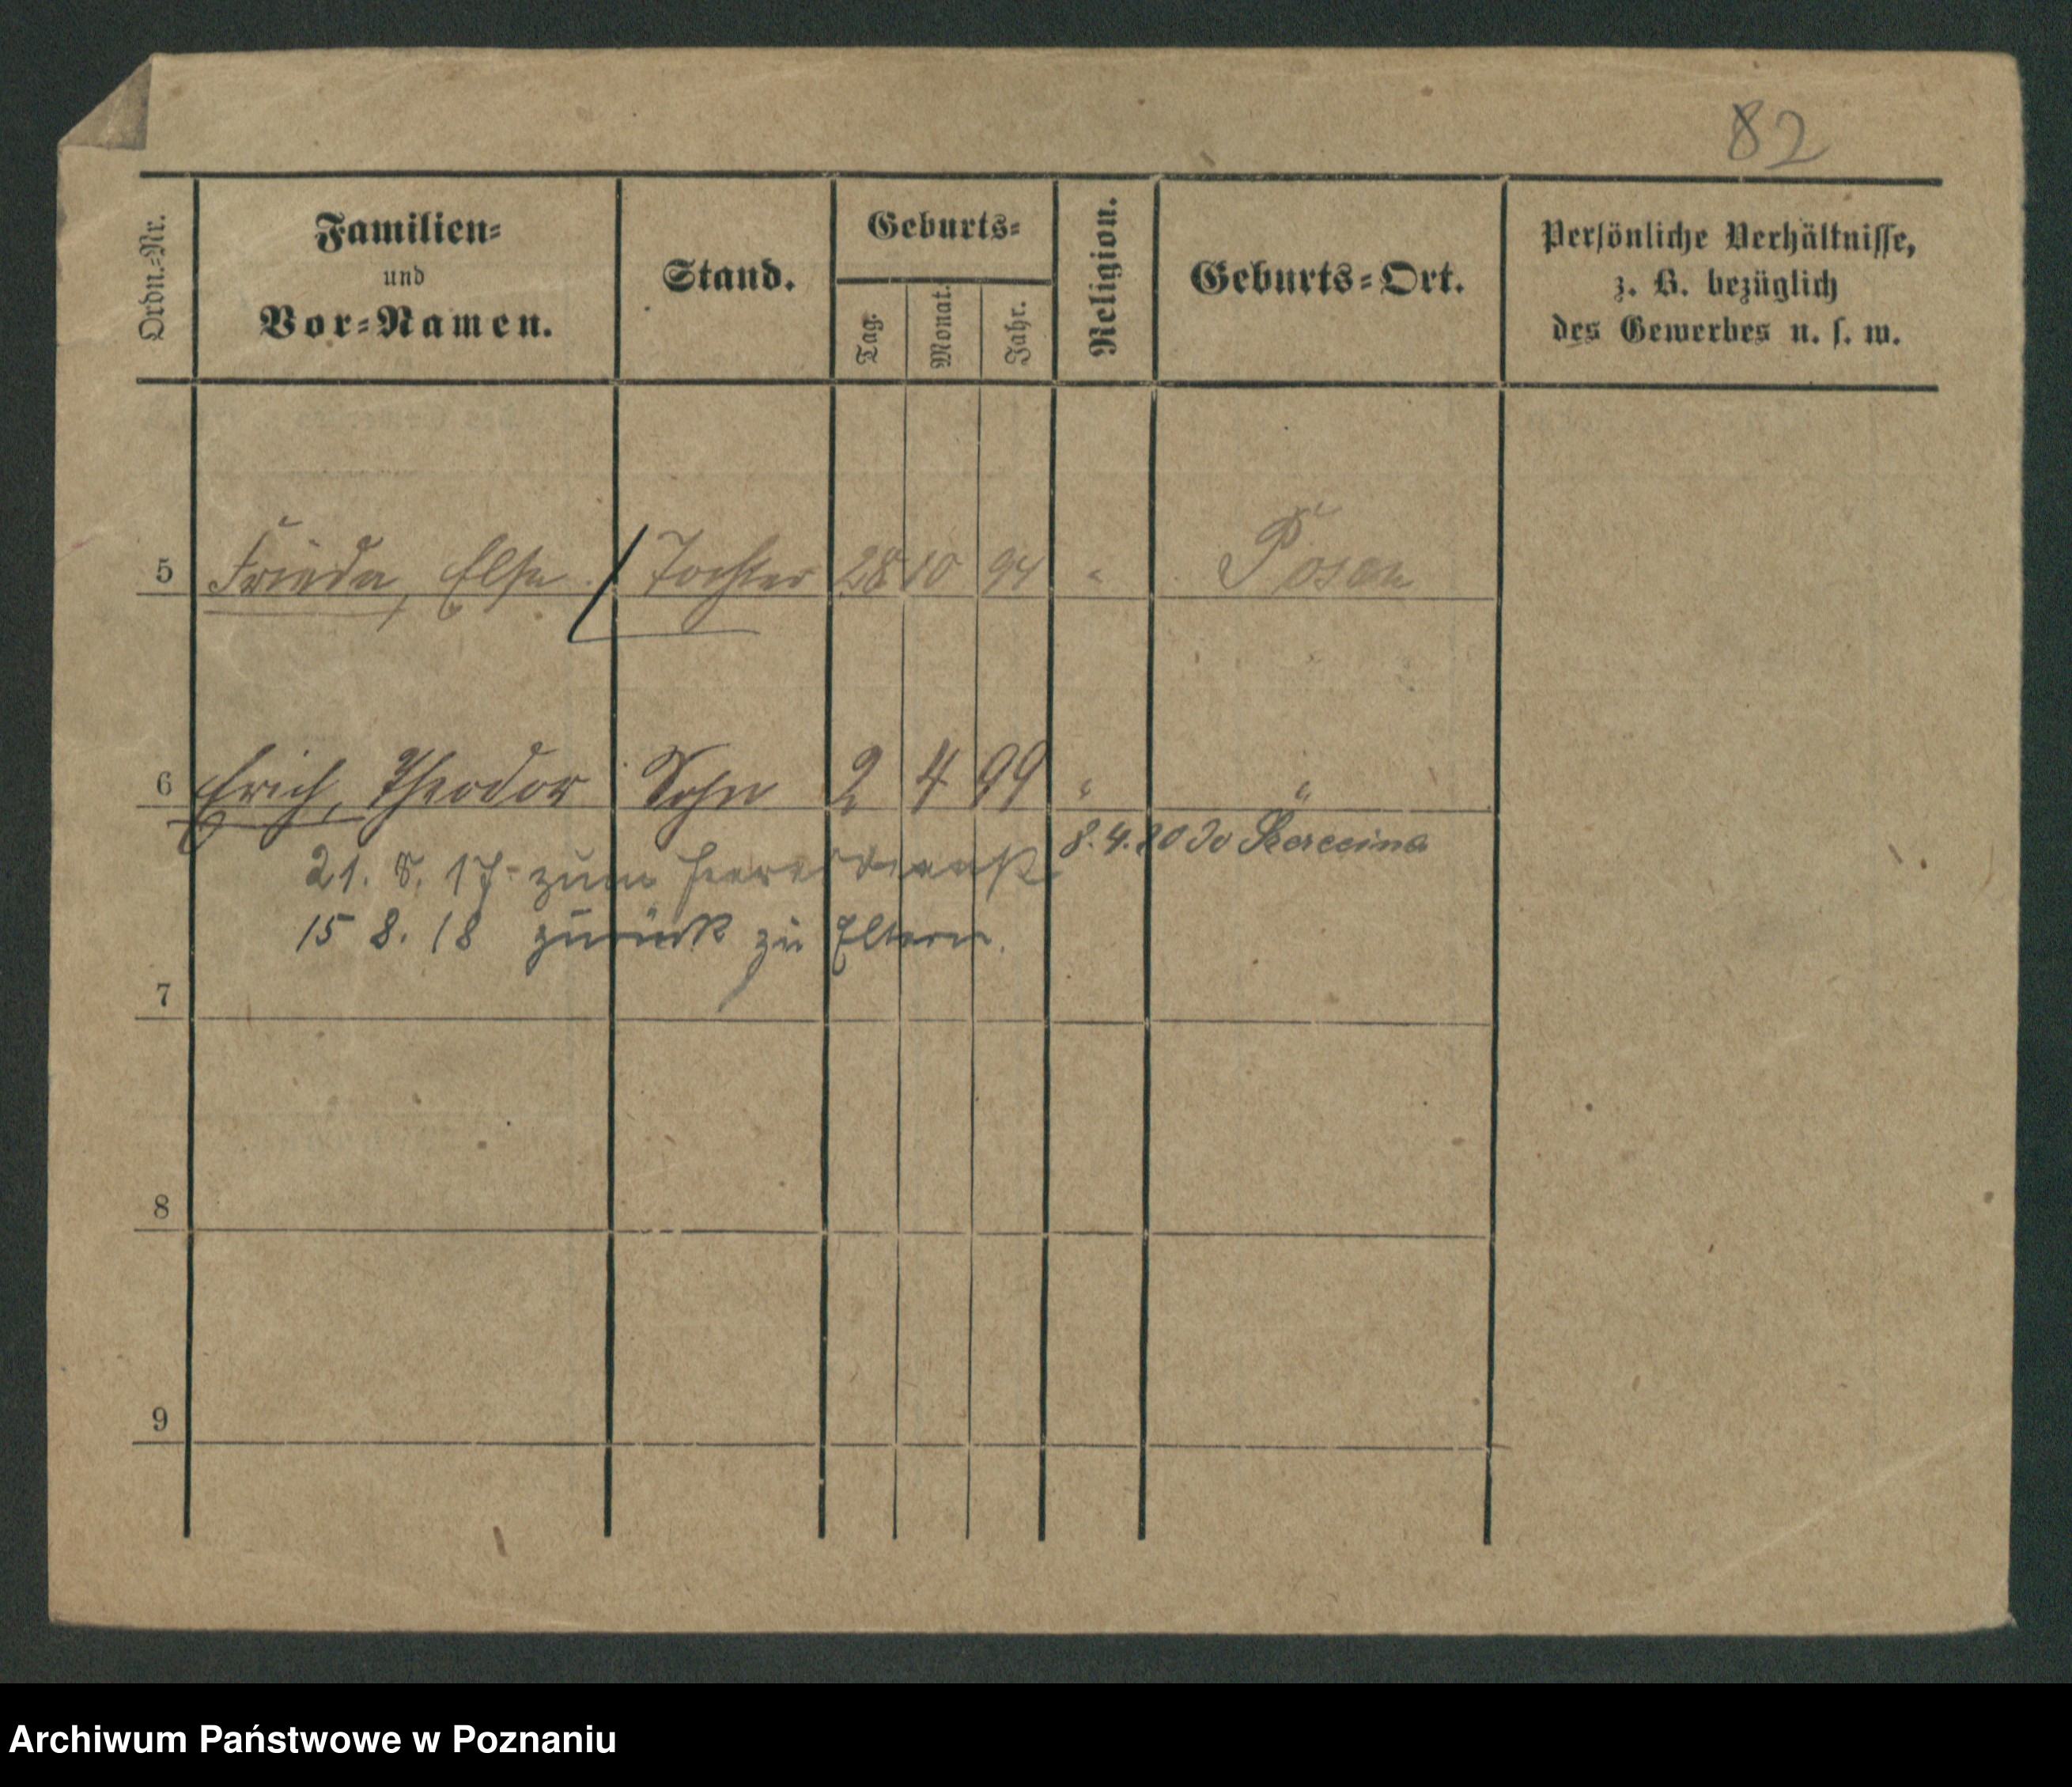 82
Ordn.-Nr.
Familien-
und
Vor-Namen.
Stand.
Geburts-
Tag.
Monat.
Jahr.
Religion.
Geburts-Ort.
Persönliche Verhältnisse,
z. B. bezüglich
des Gewerbes u. s. w.
5 Frieda, Else Tochter 28 10 94 " Posen
6 Erich, Theodor Sohn 2 4 99 " "
8. 4. 20 do
21. 8. 17 zum Heeresdienst
15 8. 18 zurück zu Eltern.
7
8
9
Archiwum Państwowe w Poznaniu